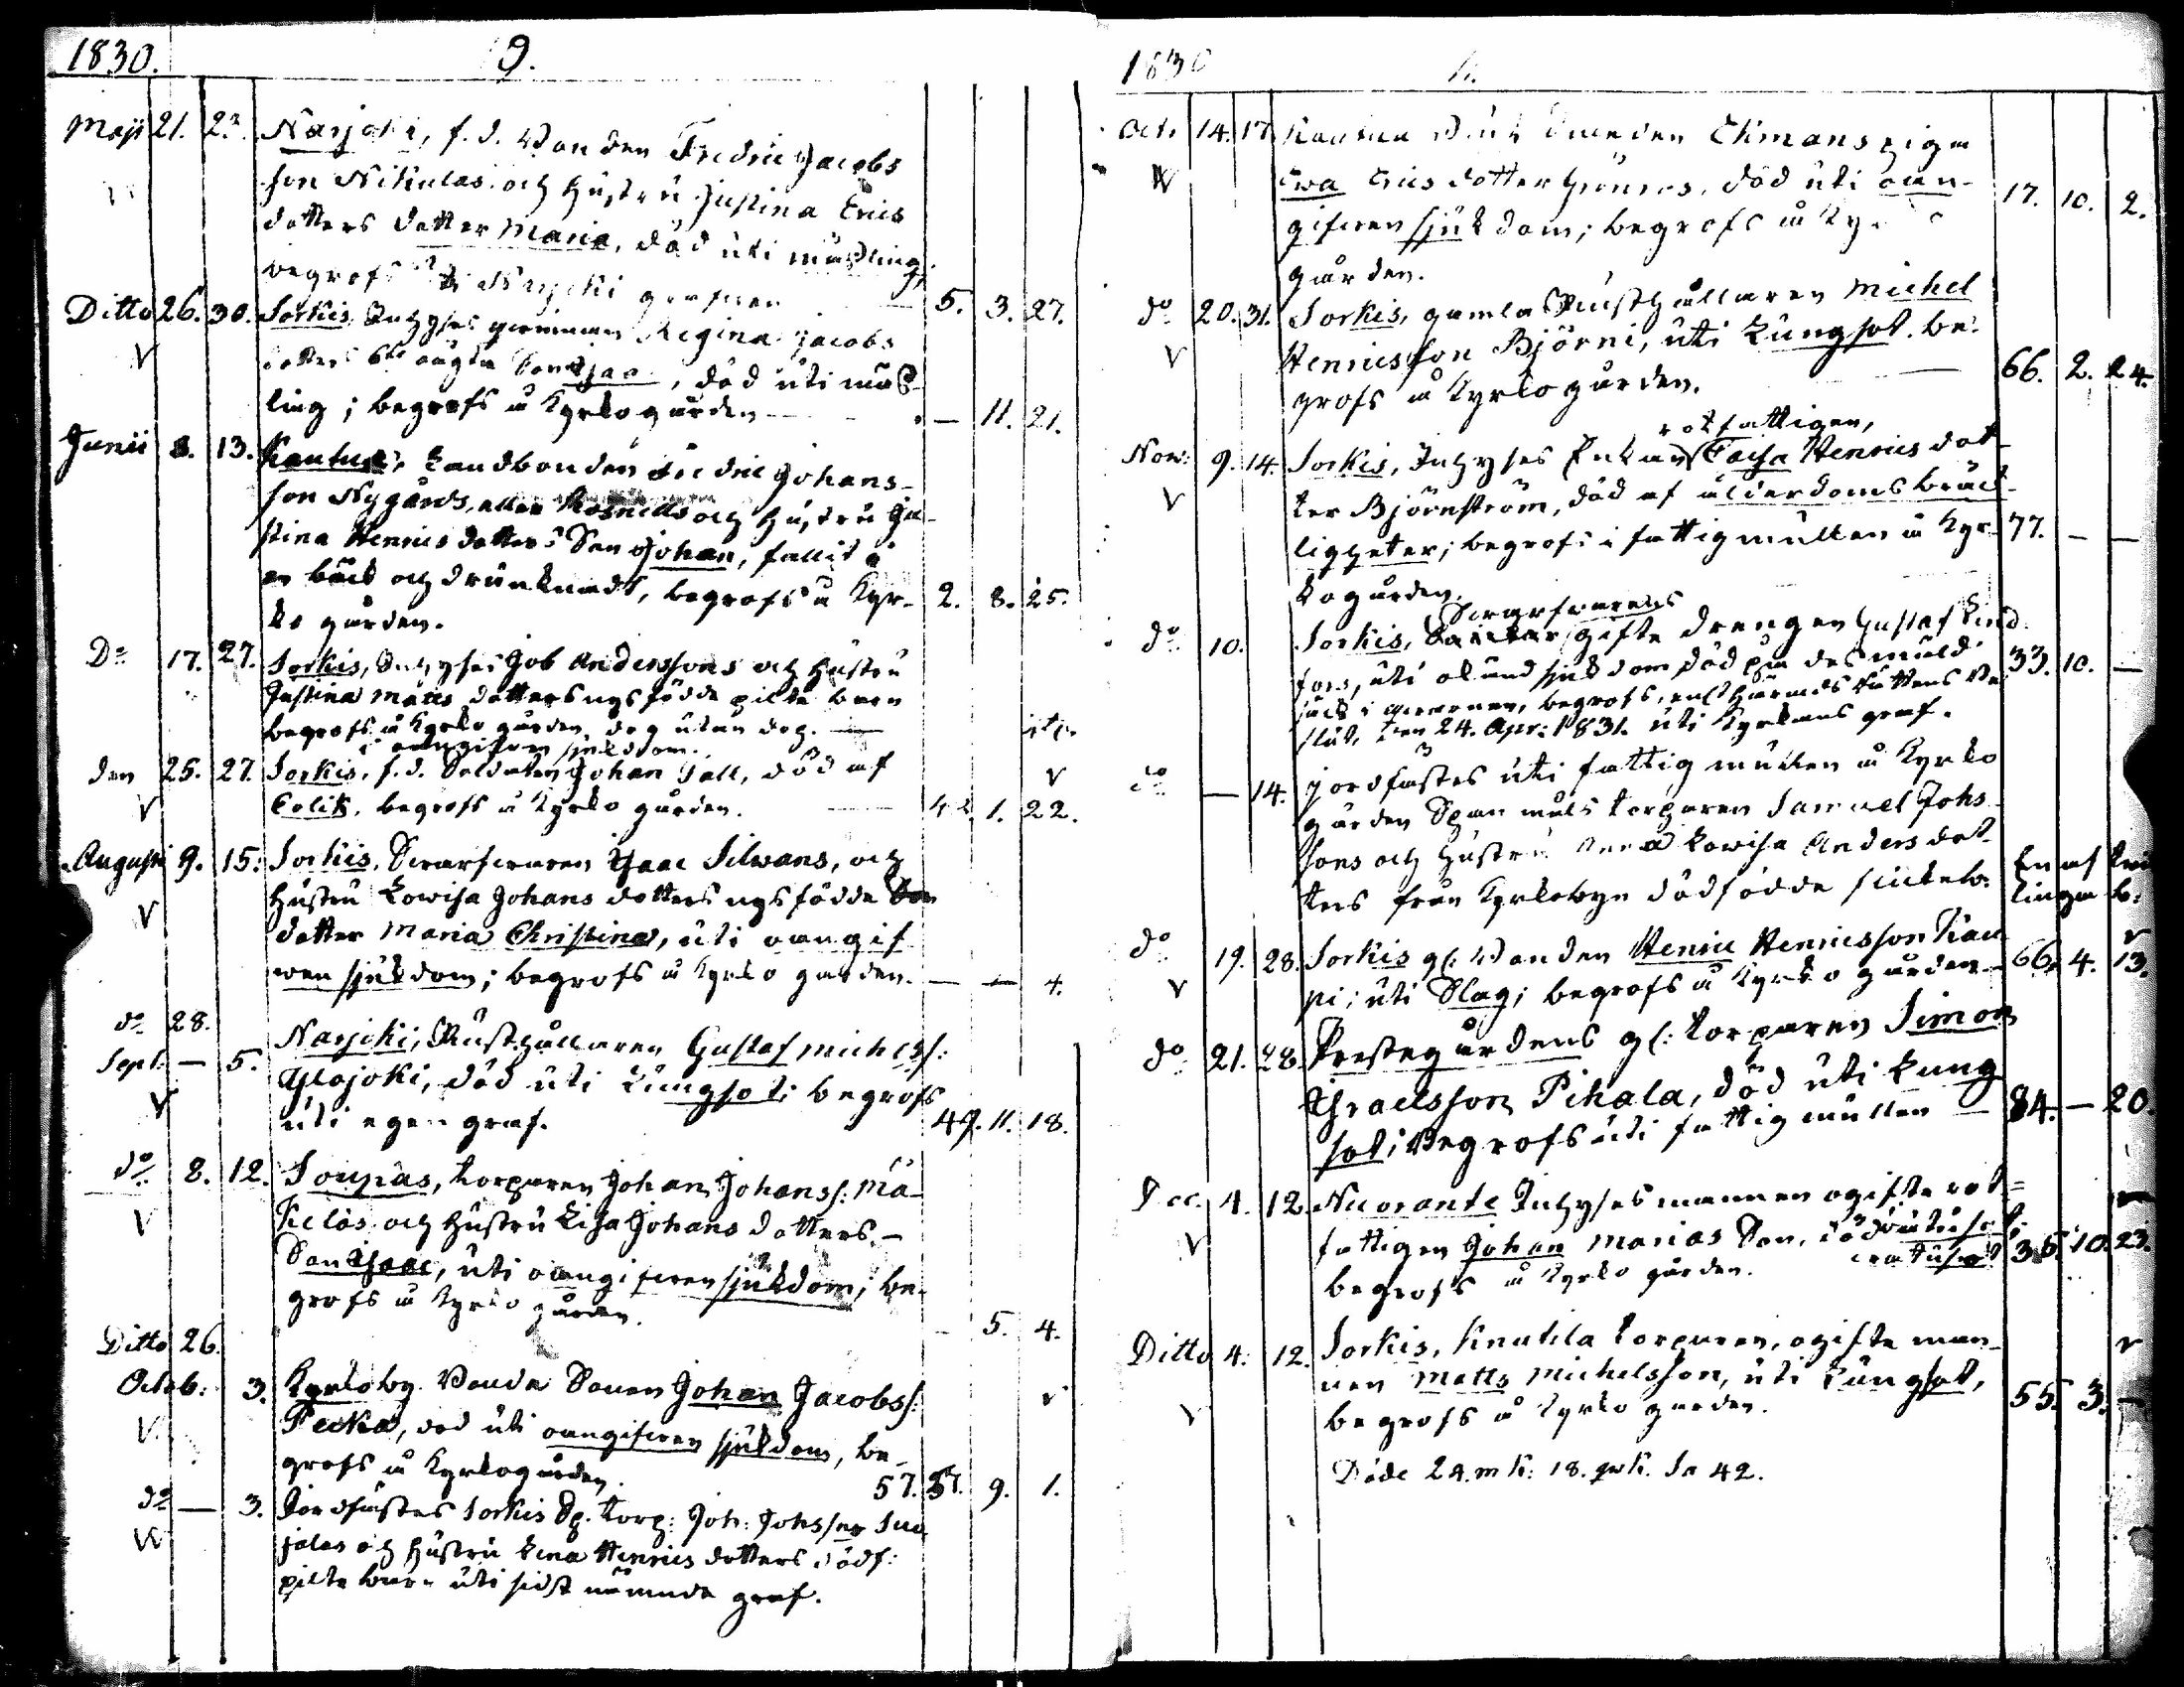 1830. 9.
Maji 21. Narjoki, f. d. Bonden Fredric Jacobs
son Nikulas och Hustru Justina Erics
dotters dotter Maria, död uti mäßling;
begrofs Narjoki grafven 5. 3. 27.
Ditto 26. 30. Sorkis, Inhyses Regina Jacobs
dotters oägta Son Isaac, död uti mäß-
ling; begrofs å Kyrko gården — 11. 21.
Junii 8. 13. Kautua, Landbonden Fredric Johans-
son Nygårds, eller och Hustru Ju-
stina Henrics dotters Son Johan, fallit i
en bäck och drunknadt, begrofs å Kyr- 2. 8. 25.
ko gården.
Do 17. 27. Sorkis, Inhyses Job Anderssons och Hustru
Justina Matts dotters nyfödde pilte barn
begrofs å Kyrko gården, dog utan dop. —
i oangifven sjukdom.
den 25. 27. Sorkis, f. d. Soldaten Johan Fall, död af
V Colik, begrofs å Kyrko gården. — 1. 22.
Augusti 9. 15. Sorkis, Svarfvaren Isaac Silwans, och
Hustru Lowisa Johans dotters nyfödde
V dotter Maria Christina, uti oangif
wen sjukdom; begrofs å Kyrko gården. — — 4.
do 28. Narjoki, Rusthållaren Gustaf Michelss:
Sept: — 5. Ylojoki, död uti Lungsot; begrofs
V uti egen graf. 49. 11. 18.
do 8. 12. Soupas, torparen Johan Johanss: Mä-
V kelas och Hustru Lisa Johans dotters —
Son Isaac, uti oangifven sjukdom; be-
grofs å Kyrko gården. 5. 4.
Ditto 26.
Octob: 3. Kyrkoby Bonde Sonen Johan Jacobss:
V Pecka, död uti oangifven sjukdom, be-
grofs å Kyrkogården. 57. 9. 1.
do — 3. Jordfästes Sorkis Sp. torp: Joh: Johsson Suo
jolas och Hustru Lena Henrics dotters dödf:
pilte barn uti sidst nämnda graf.
1830
Oct: 14. 17. Kautua Ekmans piga
Ewa Erics dotter död uti oan-
gifven sjukdom; begrofs å Kyrko 17. 10. 2.
gården.
do 20. 31. Sorkis, gamla Rusthållaren Michel
V Henricsson Björni, uti Lungsot. be-
grofs å Kyrkogården. — 66. 2. 24.
rotfattigen,
Nov: 9. 14. Sorkis, Inhyses Enkan Caisa Henrics dot-
V ter Björnström, död af ålderdoms bräck-
ligheter; begrofs i fattigmullen å Kyr- 77. — —
kogården.
Svarfvarens
do 10. Sorkis, gifte drengen Gustaf Lind
fors, uti okänd sjukdom, död på 33. 10. —
begrofs, enl: Härads Rättens
slut, den 24. Apr: 1831. uti Kyrkans graf.
do — 14. jordfästes uti fattig mullen å Kyrko
gården Spanmåls torparen Samuel Johs
sons och Hustru Lowisa Anders dot
ters från Kyrkobyn dödfödde flickeb: En af tvil
linga b:
do 19. 28. Sorkis gl: Bonden Henric Henricsson Kau
V pi; uti Slag; begrofs å Kyrko gården — 66. 4. 13.
do 21. 28. Prestegårdens gl: torparen Simon
Israelsson Pihala, död uti Lung
sot; Begrofs uti fattig mullen — 84. — 20.
Dec. 4. 12. Nuorante Inhysesmannen ogifte rot=
V fattigen Johan Marias Son, död
begrofs å Kyrko gården. 10. 23.
Ditto 4. 12. Sorkis, Knutila torparen, ogifte man-
nen Matts Michelsson, uti Lungsot,
V begrofs å Kyrko gården. 55. 3. —
Döde 24. mk: 18. qvk. Sa 42.